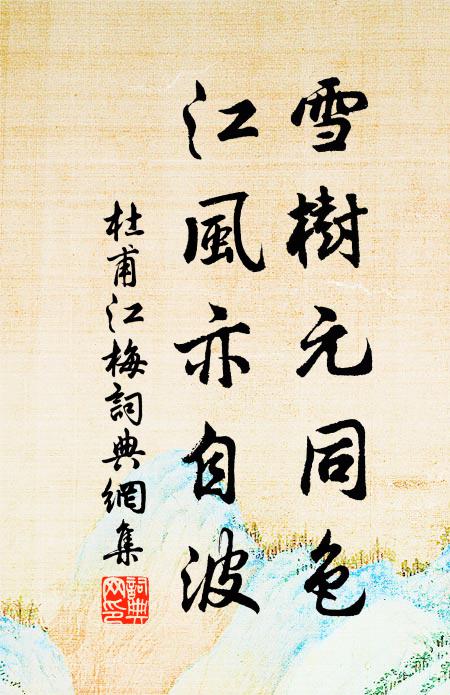 雪樹元同色
江風亦自波
杜甫江梅詞典網集
詞典